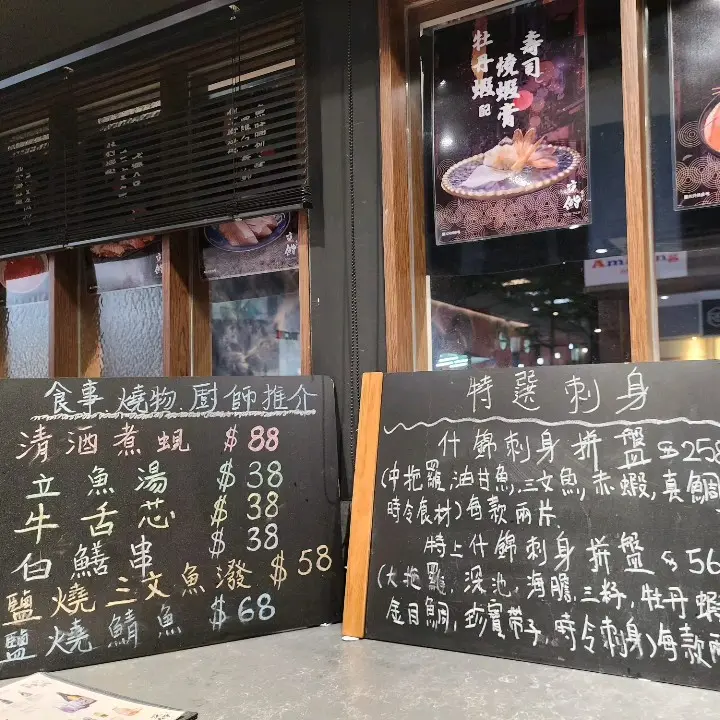 壽司
燒蝦膏
牡丹蝦
食事 燒物 廚師推介
清酒煮蜆 $88
立魚湯 $38
牛舌芯 $38
白鱔串 $38
鹽燒三文魚潑 $58
鹽燒鯖魚 $68
特選刺身
什錦刺身拼盤 $258
(中拖羅,油甘魚,三文魚,赤蝦,真鯛
時令食材)每款兩片.
特上什錦刺身拼盤 $56
(大拖羅,深池,海膽,三籽,牡丹蝦
金目鯛,珍寶帶子,時令刺身)每款兩